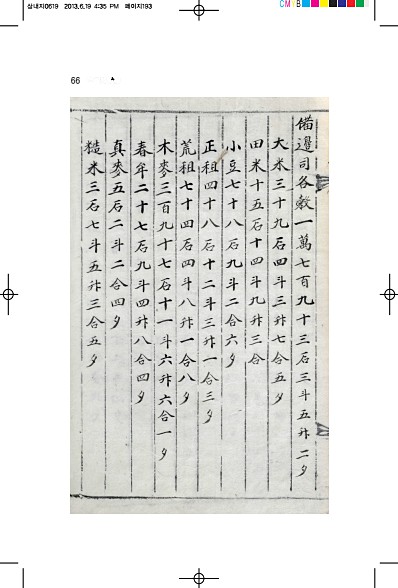 삼내지0619 2013.6.19 4:35 PM 페이지193
CMYB
66
備邊司各穀一萬七百九十三石三斗五升二夕
大米三十九石四斗三升七合五夕
田米十五石十四斗九升三合
小豆七十八石九斗二合六夕
正租四十八石十二斗三升一合三夕
荒租七十四石四斗八升一合八夕
木麥三百九十七石十一斗六升六合一夕
春牟二十七石九斗四升八合四夕
真麥五石二斗二合四夕
糙米三石七斗五升三合五夕